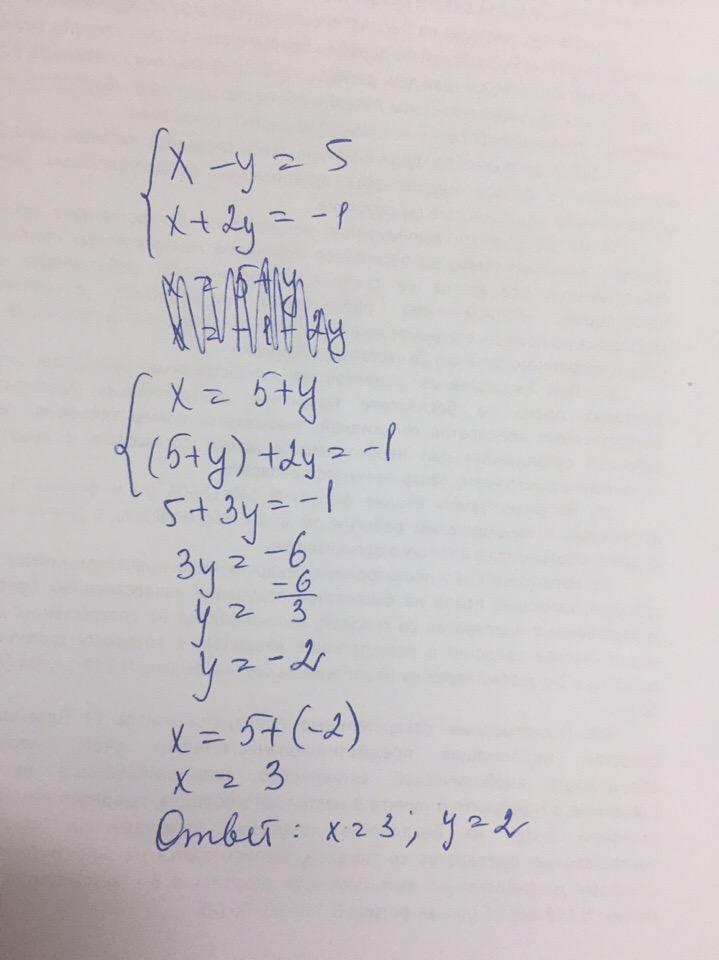 x - y = 5
x + 2y = -1
x = 5 + y
(5+y) + 2y = -1
5 + 3y = -1
3y = -6
y = -6/3
y = -2
x = 5 + (-2)
x = 3
Ответ: x = 3; y = 2